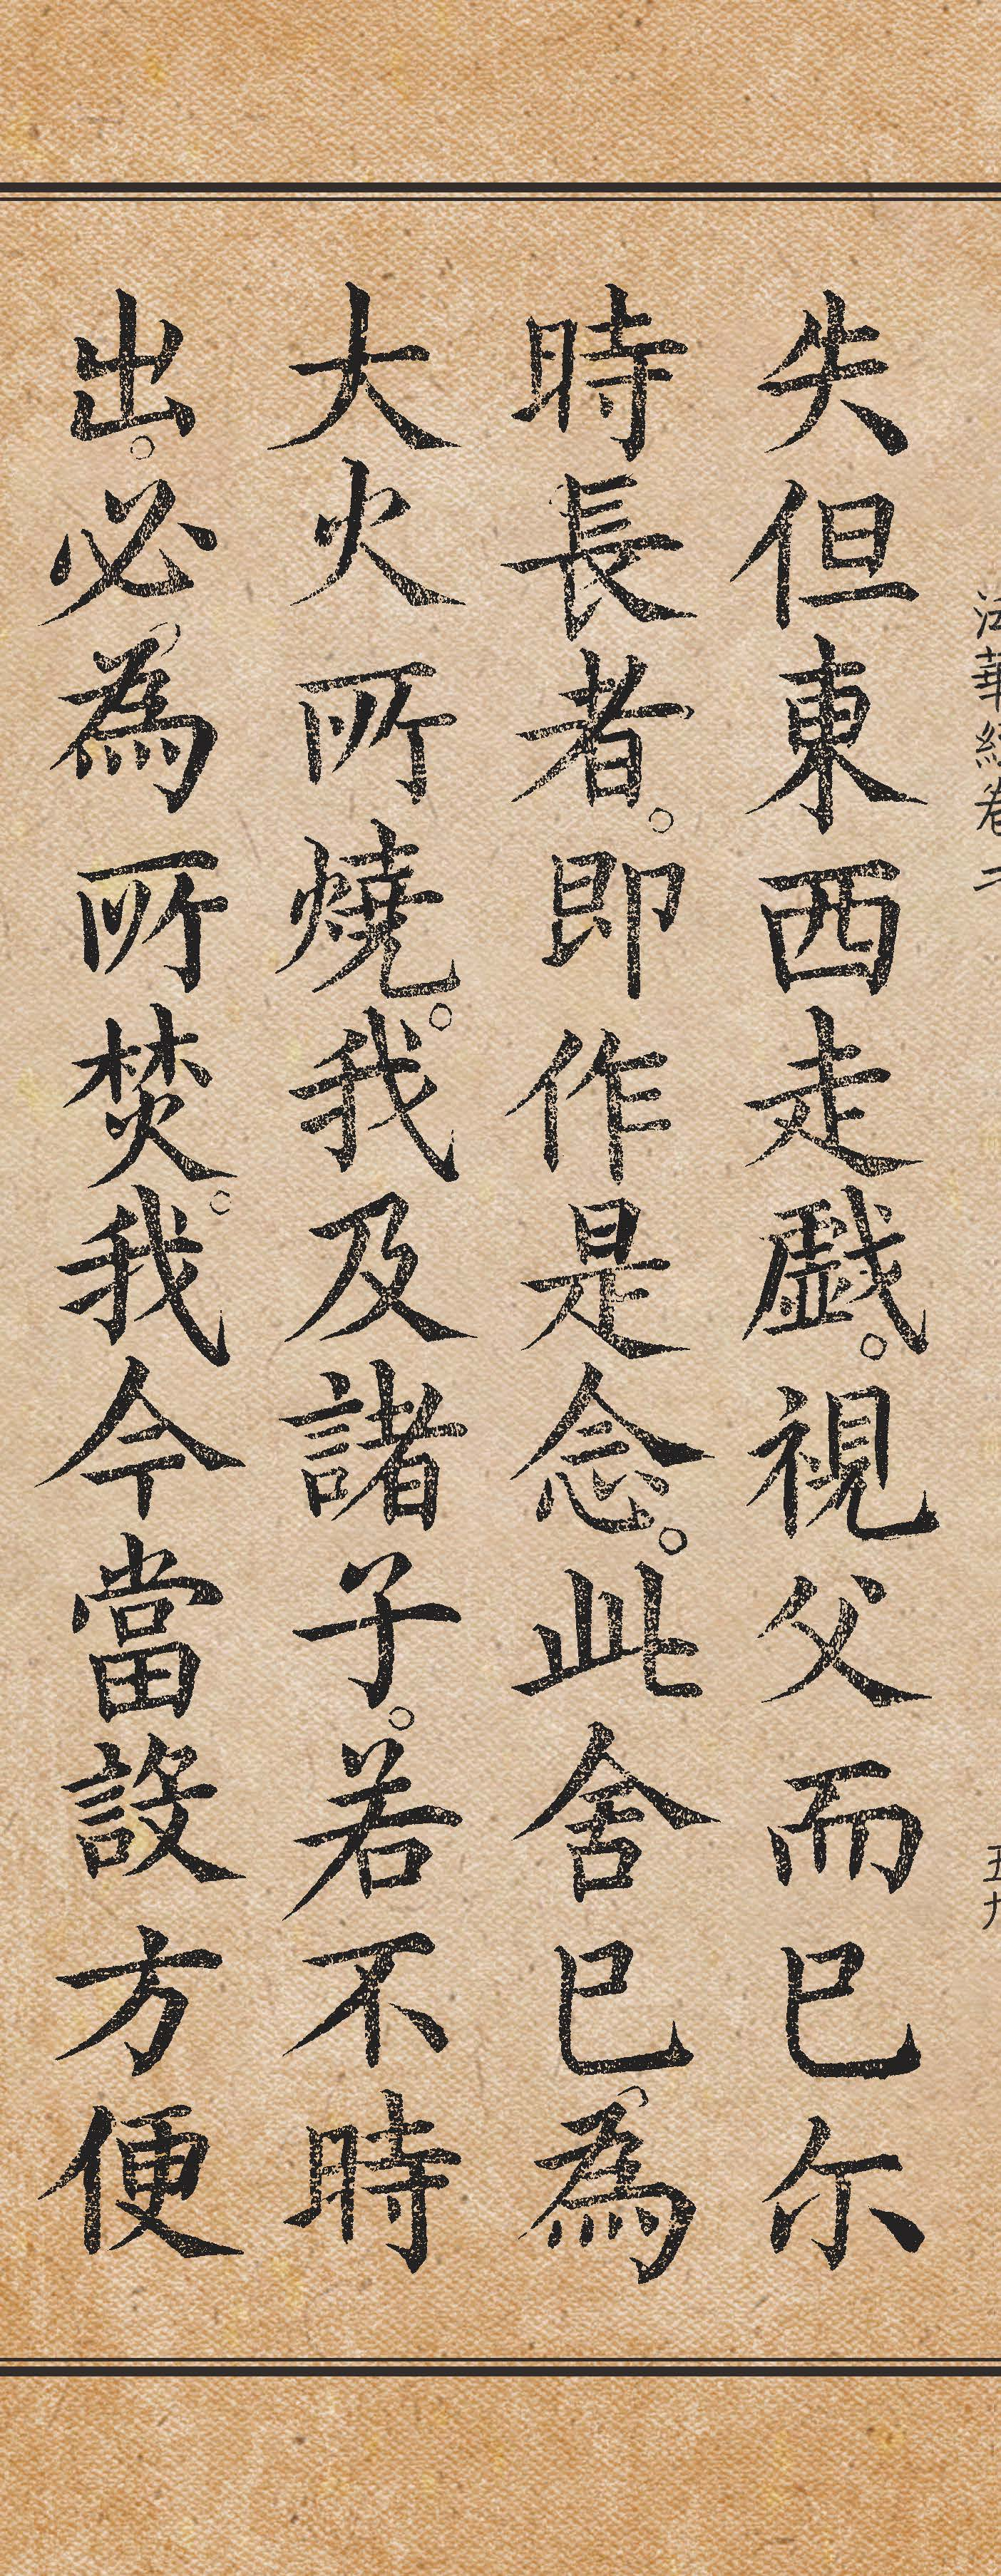 法華經卷二
五九
失但東西走戯。視父而已尓
時長者。即作是念。此舍已為
大火所燒。我及諸子。若不時
出。必為所焚。我今當設方便